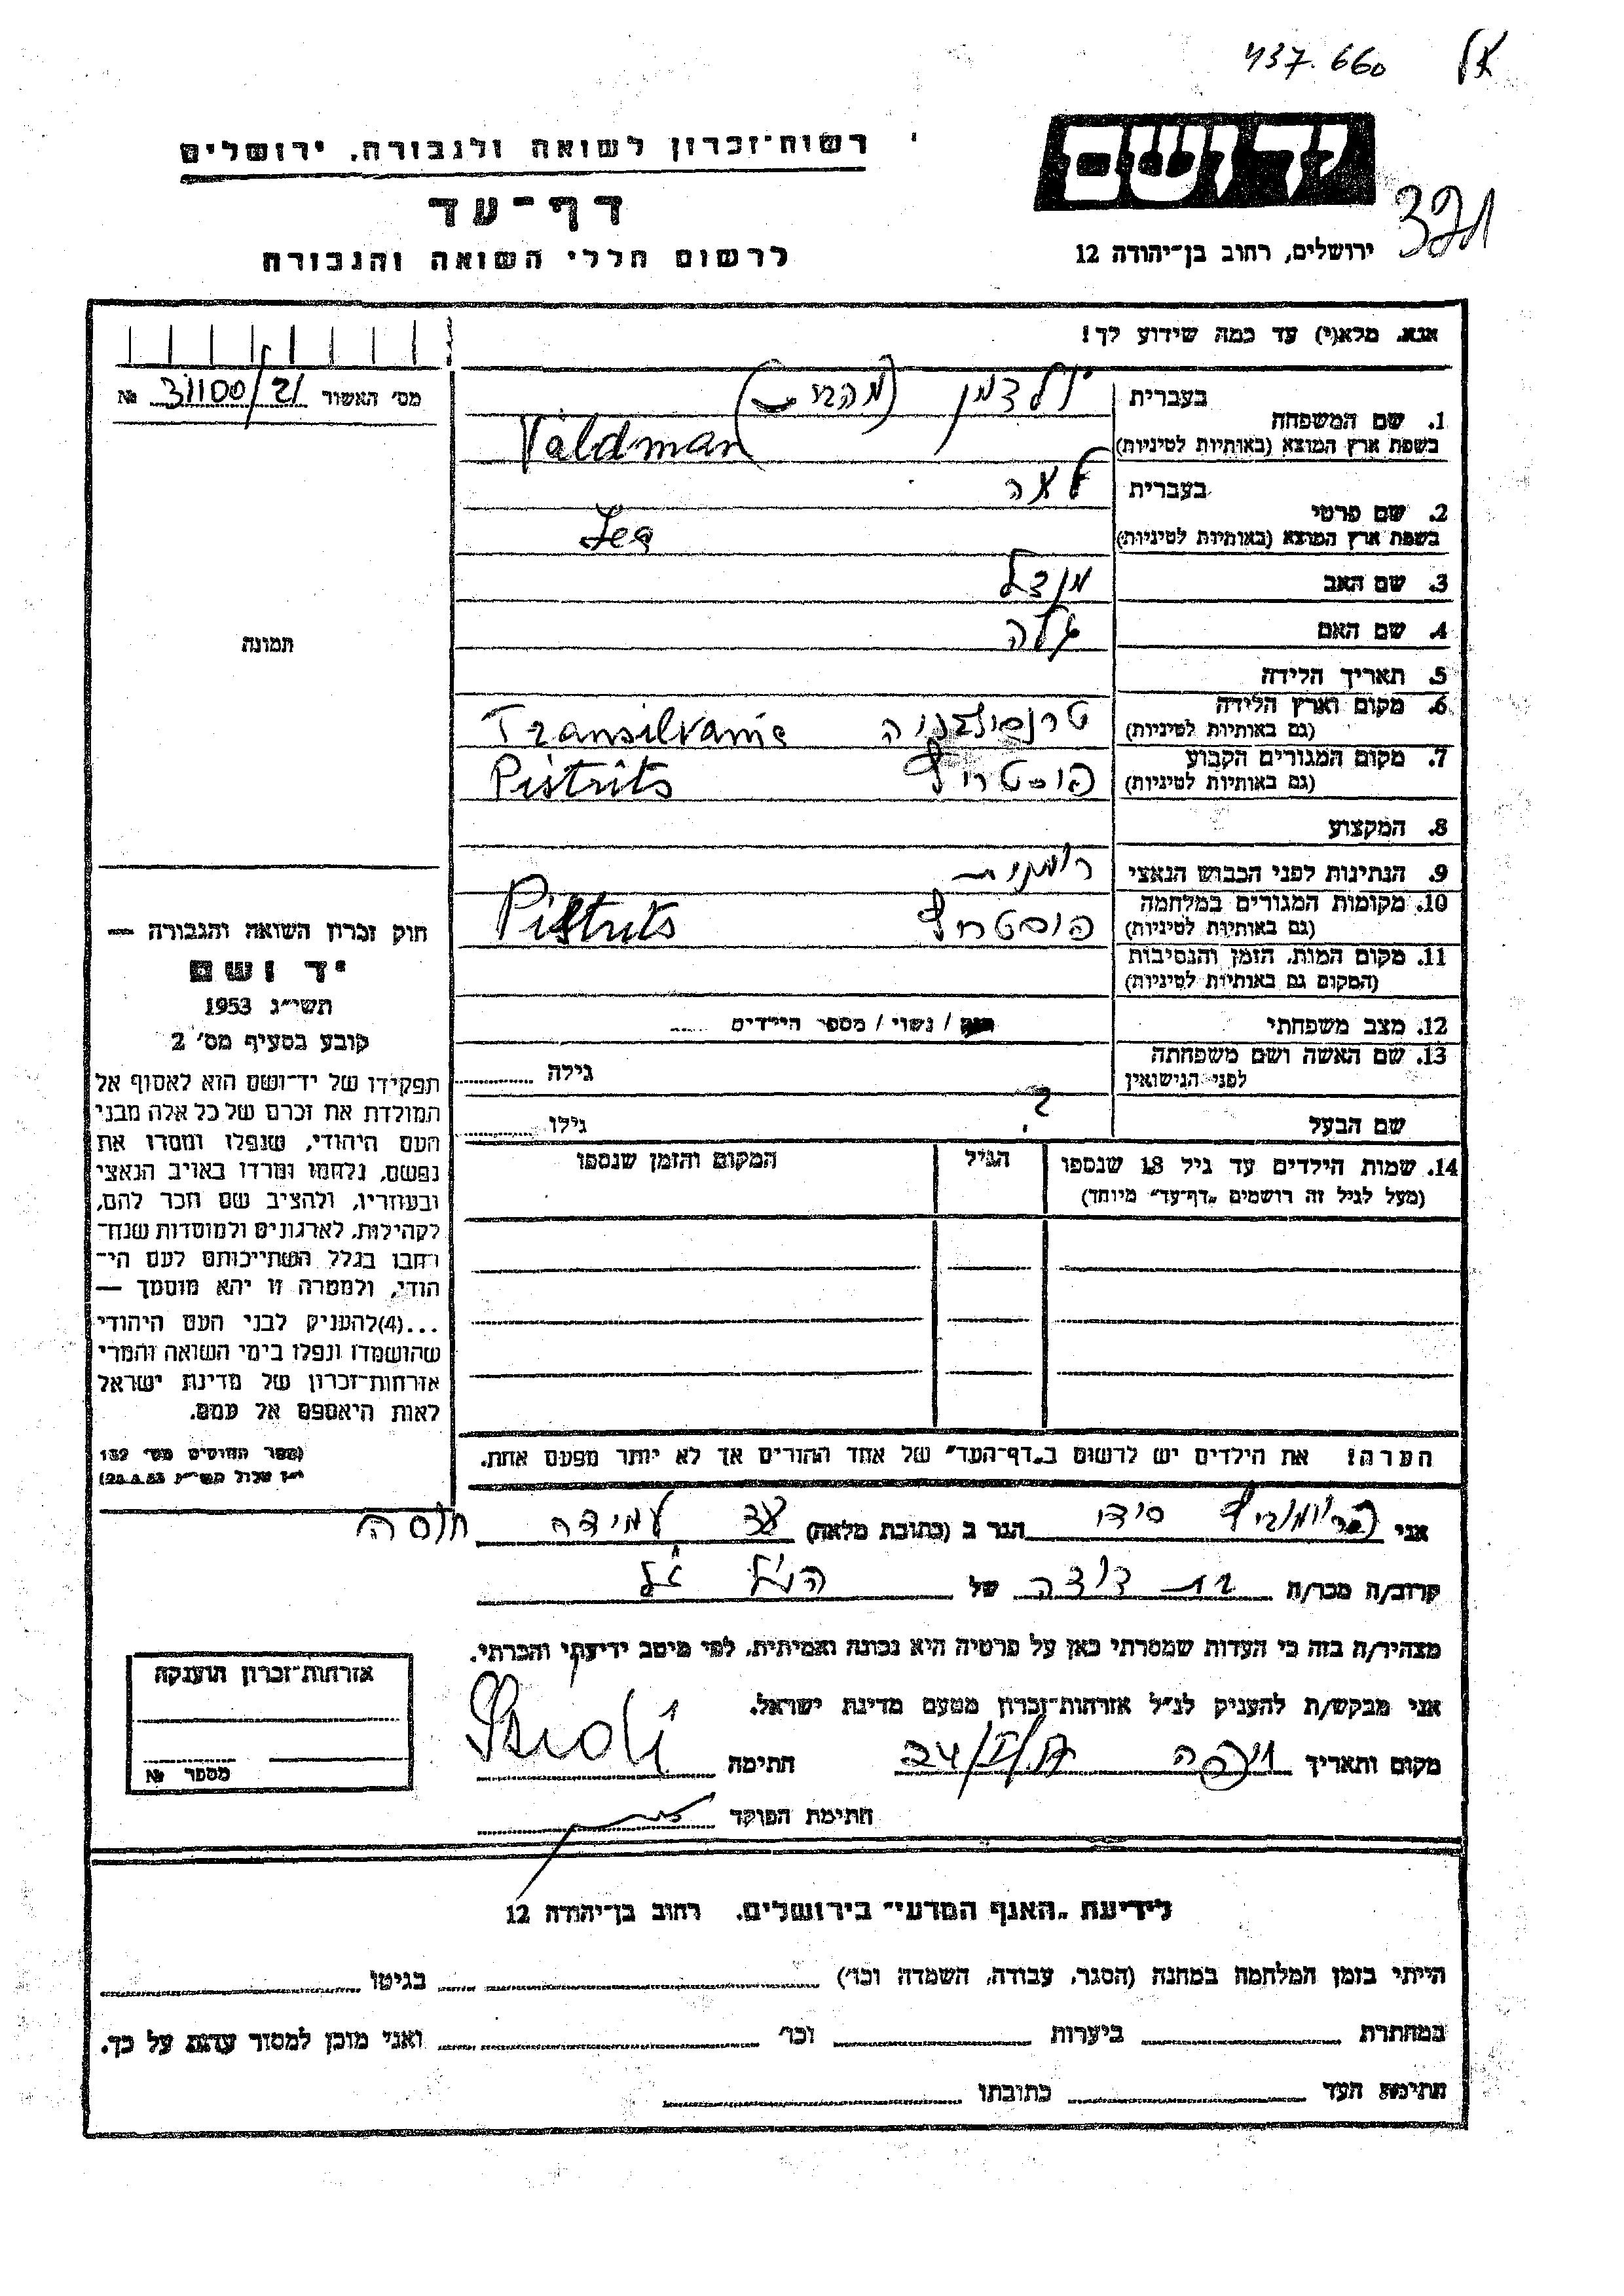 437.660
321
יד ושם
רשות־זכרון לשואה ולגבורה, ירושלים
דף־עד
לרשום חללי השואה והגבורה
ירושלים, רחוב בן־יהודה 12
אנא, מלא(י) עד כמה שידוע לך!
מס׳ האשור 31100/21 №
1. שם המשפחה בעברית ולדמן
בשפת ארץ המוצא (באותיות לטיניות) Valdman
2. שם פרטי בעברית לאה
בשפת ארץ המוצא (באותיות לטיניות) Lea
3. שם האב מנדל
4. שם האם
5. תאריך הלידה
6. מקום וארץ הלידה טרנסילבניה Transilvanie
(גם באותיות לטיניות)
7. מקום המגורים הקבוע פיסטריץ Pistrits
(גם באותיות לטיניות)
8. המקצוע
9. הנתינות לפני הכבוש הנאצי רומנית
10. מקומות המגורים במלחמה פיסטריץ Pistrits
(גם באותיות לטיניות)
11. מקום המות, הזמן והנסיבות
(המקום גם באותיות לטיניות)
12. מצב משפחתי / נשוי / מספר הילדים
13. שם האשה ושם משפחתה גילה
לפני הנישואין
שם הבעל ? גילו
14. שמות הילדים עד גיל 18 שנספו הגיל המקום והזמן שנספו
(מעל לגיל זה רושמים „דף־עד” מיוחד)
תמונה
חוק זכרון השואה והגבורה —
יד ושם
תשי״ג 1953
קובע בסעיף מס׳ 2
תפקידו של יד־ושם הוא לאסוף אל
המולדת את זכרם של כל אלה מבני
העם היהודי, שנפלו ומסרו את
נפשם, נלחמו ומרדו באויב הנאצי
ובעוזריו, ולהציב שם וזכר להם,
לקהילות, לארגונים ולמוסדות שנח־
רחבו בגלל השתייכותם לעם הי־
הודי, ולמטרה זו יהא מוסמך —
...(4)להעניק לבני העם היהודי
שהושמדו ונפלו בימי השואה והמרי
אזרחות־זכרון של מדינת ישראל
לאות היאספם אל עמם.
(ספר החוקים מס׳ 132
י״ז אלול תשי״ג 28.8.53)
הערה! את הילדים יש לרשום ב„דף־העד” של אחד ההורים אך לא יותר מפעם אחת.
אני סידי הגר ב (כתובת מלאה)
קרוב/ה מכר/ה בת דודה של הנ״ל
מצהיר/ה בזה כי העדות שמסרתי כאן על פרטיה היא נכונה ואמיתית, לפי מיטב ידיעתי והכרתי.
אני מבקש/ת להעניק לנ״ל אזרחות־זכרון מטעם מדינת ישראל.
מקום ותאריך חיפה חתימה
חתימת הפוקד
אזרחות־זכרון הוענקה
מספר №
לידיעת „האגף המדעי” בירושלים, רחוב בן־יהודה 12
הייתי בזמן המלחמה במחנה (הסגר, עבודה, השמדה וכו׳) בגיטו
במחתרת ביערות וכו׳ ואני מוכן למסור עדות על כך.
חתימת העד כתובתו